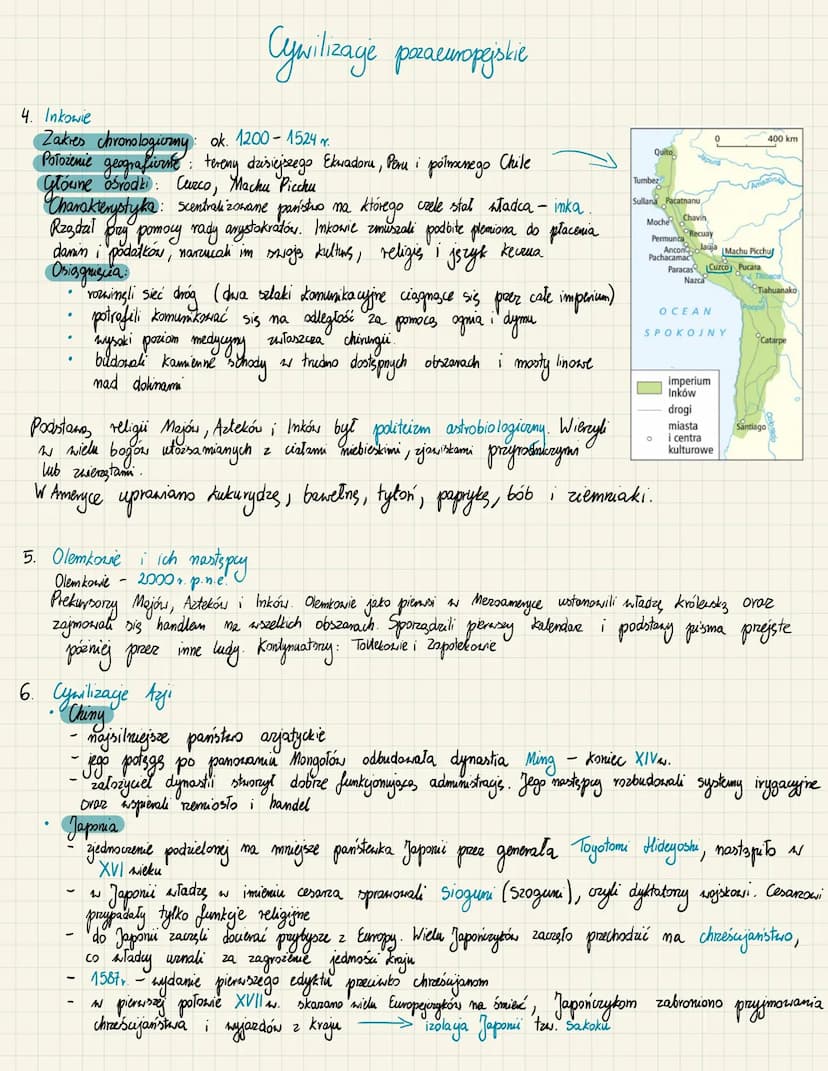 Cywilizacje pozaeuropejskie
4. Inkowie
Zakres chronologiczny: ok. 1200 - 1524 r.
Położenie geograficzne: tereny dzisiejszego Ekwadoru, Peru i północnego Chile
Główne ośrodki: Cuzco, Machu Picchu
Charakterystyka: scentralizowane państwo na którego czele stał władca - inka.
Rządził przy pomocy rady arystokratów. Inkowie zmuszali podbite plemiona do płacenia
danin i podatków, narzucali im swoją kulturę, religię i język keczua
Osiągnięcia:
rozwinęli sieć dróg (dwa szlaki komunikacyjne ciągnące się przez całe imperium)
• potrafili komunikować się na odległość za pomocą ognia i dymu
• wysoki poziom medycyny zwłaszcza chirurgii
• budowali kamienne schody w trudno dostępnych obszarach i mosty linowe
nad dolinami
Podstawą religii Majów, Azteków i Inków był politeizm astrobiologiczny. Wierzyli
w wielu bogów utożsamianych z ciałami niebieskimi, zjawiskami przyrodniczymi
lub zwierzętami.
W Ameryce uprawiano kukurydzę, bawełnę, tytoń, paprykę, bób i ziemniaki.
0 400 km
Quito
Japurá
Amazonka
Tumbez
Sullana
Pacatnanu
Moche
Chavin
Recuay
Permunca
Ancon
Jauja
Machu Picchu
Pachacamac
Paracas
Cuzco
Pucara
Nazca
Titicaca
Tiahuanako
Poopó
OCEAN
SPOKOJNY
Catarpe
Santiago
Colorado
imperium
Inków
drogi
miasta
i centra
kulturowe
5. Olemkowie i ich następcy
Olemkowie - 2000 r. p.n.e.
Prekursorzy Majów, Azteków i Inków. Olemkowie jako pierwsi w Mezoameryce ustanowili władzę królewską oraz
zajmowali się handlem na wszelkich obszarach. Sporządzili pierwszy kalendarz i podstawy pisma przejęte
później przez inne ludy. Kontynuatorzy: Toltekowie i Zapotekowie
6. Cywilizacje Azji
• Chiny
- najsilniejsze państwo azjatyckie
- jego potęgę po panowaniu Mongołów odbudowała dynastia Ming - koniec XIV w.
- założyciel dynastii stworzył dobrze funkcjonującą administrację. Jego następcy rozbudowali systemy irygacyjne
oraz wspierali rzemiosło i handel
• Japonia
- zjednoczenie podzielonej na mniejsze państewka Japonii przez generała Toyotomi Hideyoshi, nastąpiło w
XVI wieku
- w Japonii władzę w imieniu cesarza sprawowali Sioguni (Szoguni), czyli dyktatorzy wojskowi. Cesarzowi
przypadały tylko funkcje religijne
- do Japonii zaczęli docierać przybysze z Europy. Wielu Japończyków zaczęło przechodzić na chrześcijaństwo,
co władcy uznali za zagrożenie jedności kraju
- 1587 r. - wydanie pierwszego edyktu przeciwko chrześcijanom
- w pierwszej połowie XVII w. skazano wielu Europejczyków na śmierć, Japończykom zabroniono przyjmowania
chrześcijaństwa i wyjazdów z kraju → izolacja Japonii tzw. Sakoku